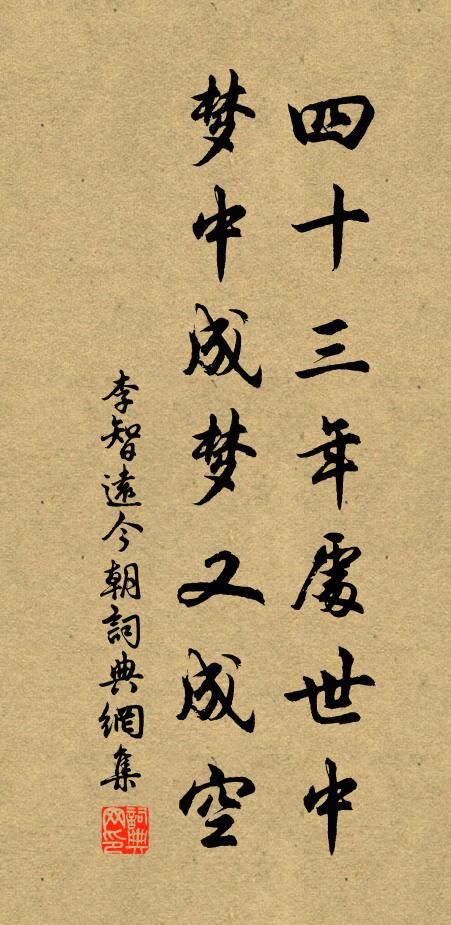 四十三年處世中
梦中成梦又成空
李智遠今朝詞典網集
詞典网印